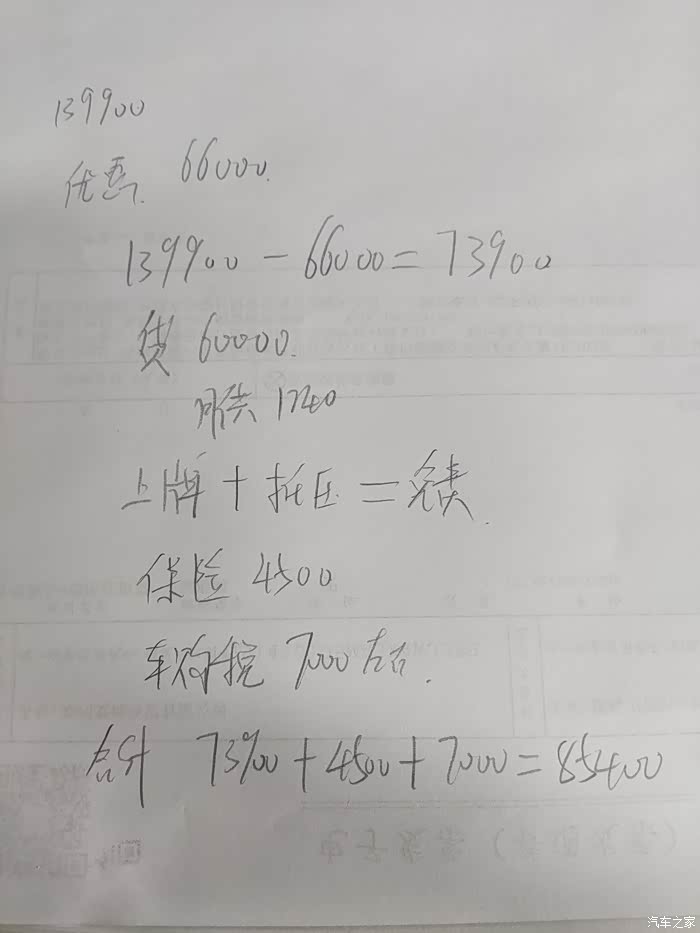 139900
优惠 66000.
139900 - 66000 = 73900
贷 60000.
月供 1240
上牌 + 抵压 = 免费.
保险 4500
车购税 7000 左右.
总计 73900 + 4500 + 7000 = 85400
汽车之家